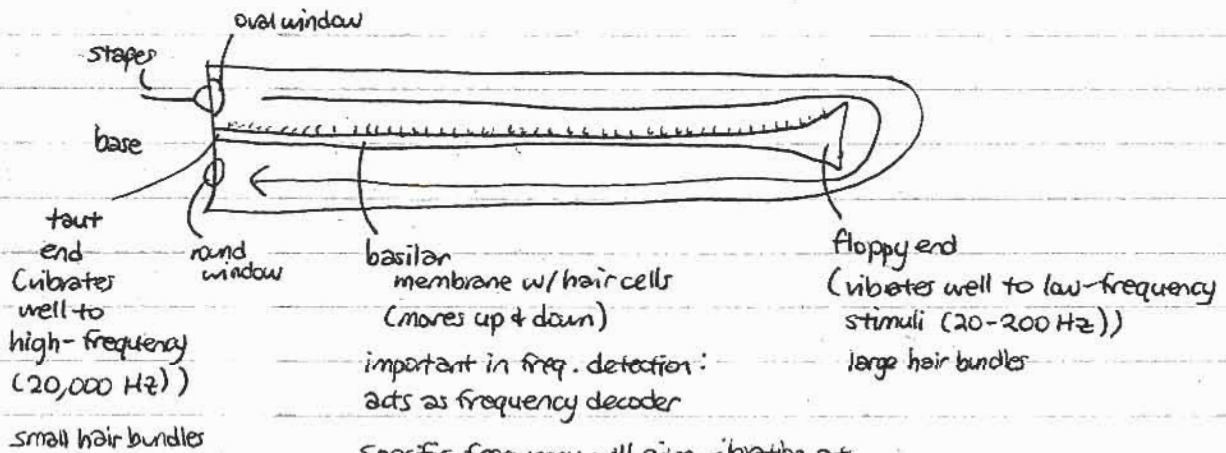 oval window
stapes
base
taut
end
(vibrates
well to
high-frequency
(20,000 Hz))
small hair bundles
round
window
basilar
membrane w/ hair cells
(moves up & down)
important in freq. detection:
acts as frequency decoder
specific frequency will
floppy end
(vibrates well to low-frequency
stimuli (20-200 Hz))
large hair bundles